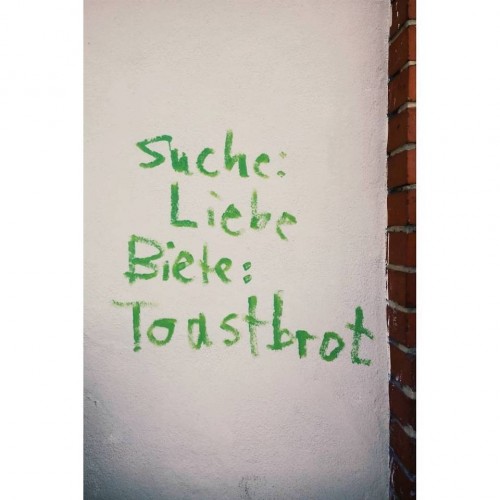 Suche:
Liebe
Biete:
Toastbrot